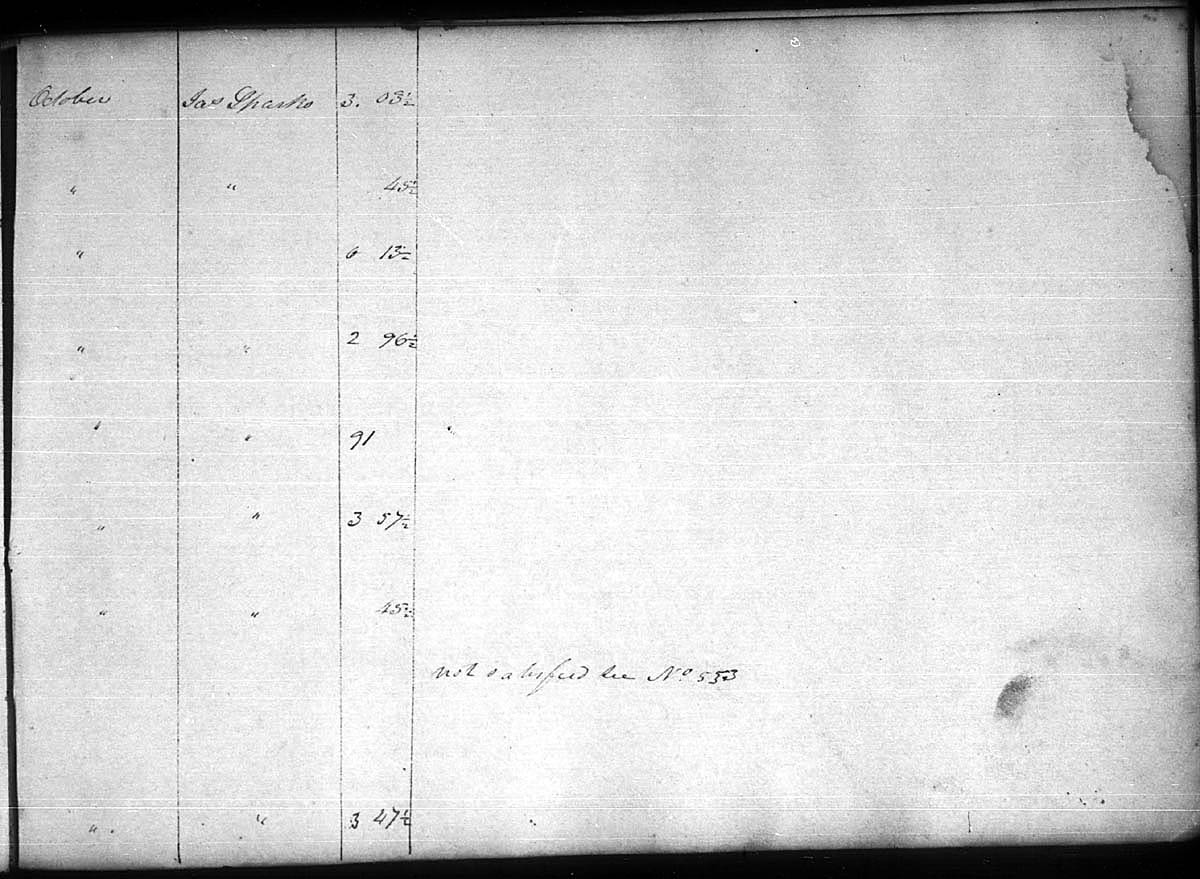 October Jas Sparks 3. 03½
" " 45½
" 6 13½
" " 2 96½
" " 91
" " 3 57½
" " 45½
not satisfied see No 553
" " 3 47½